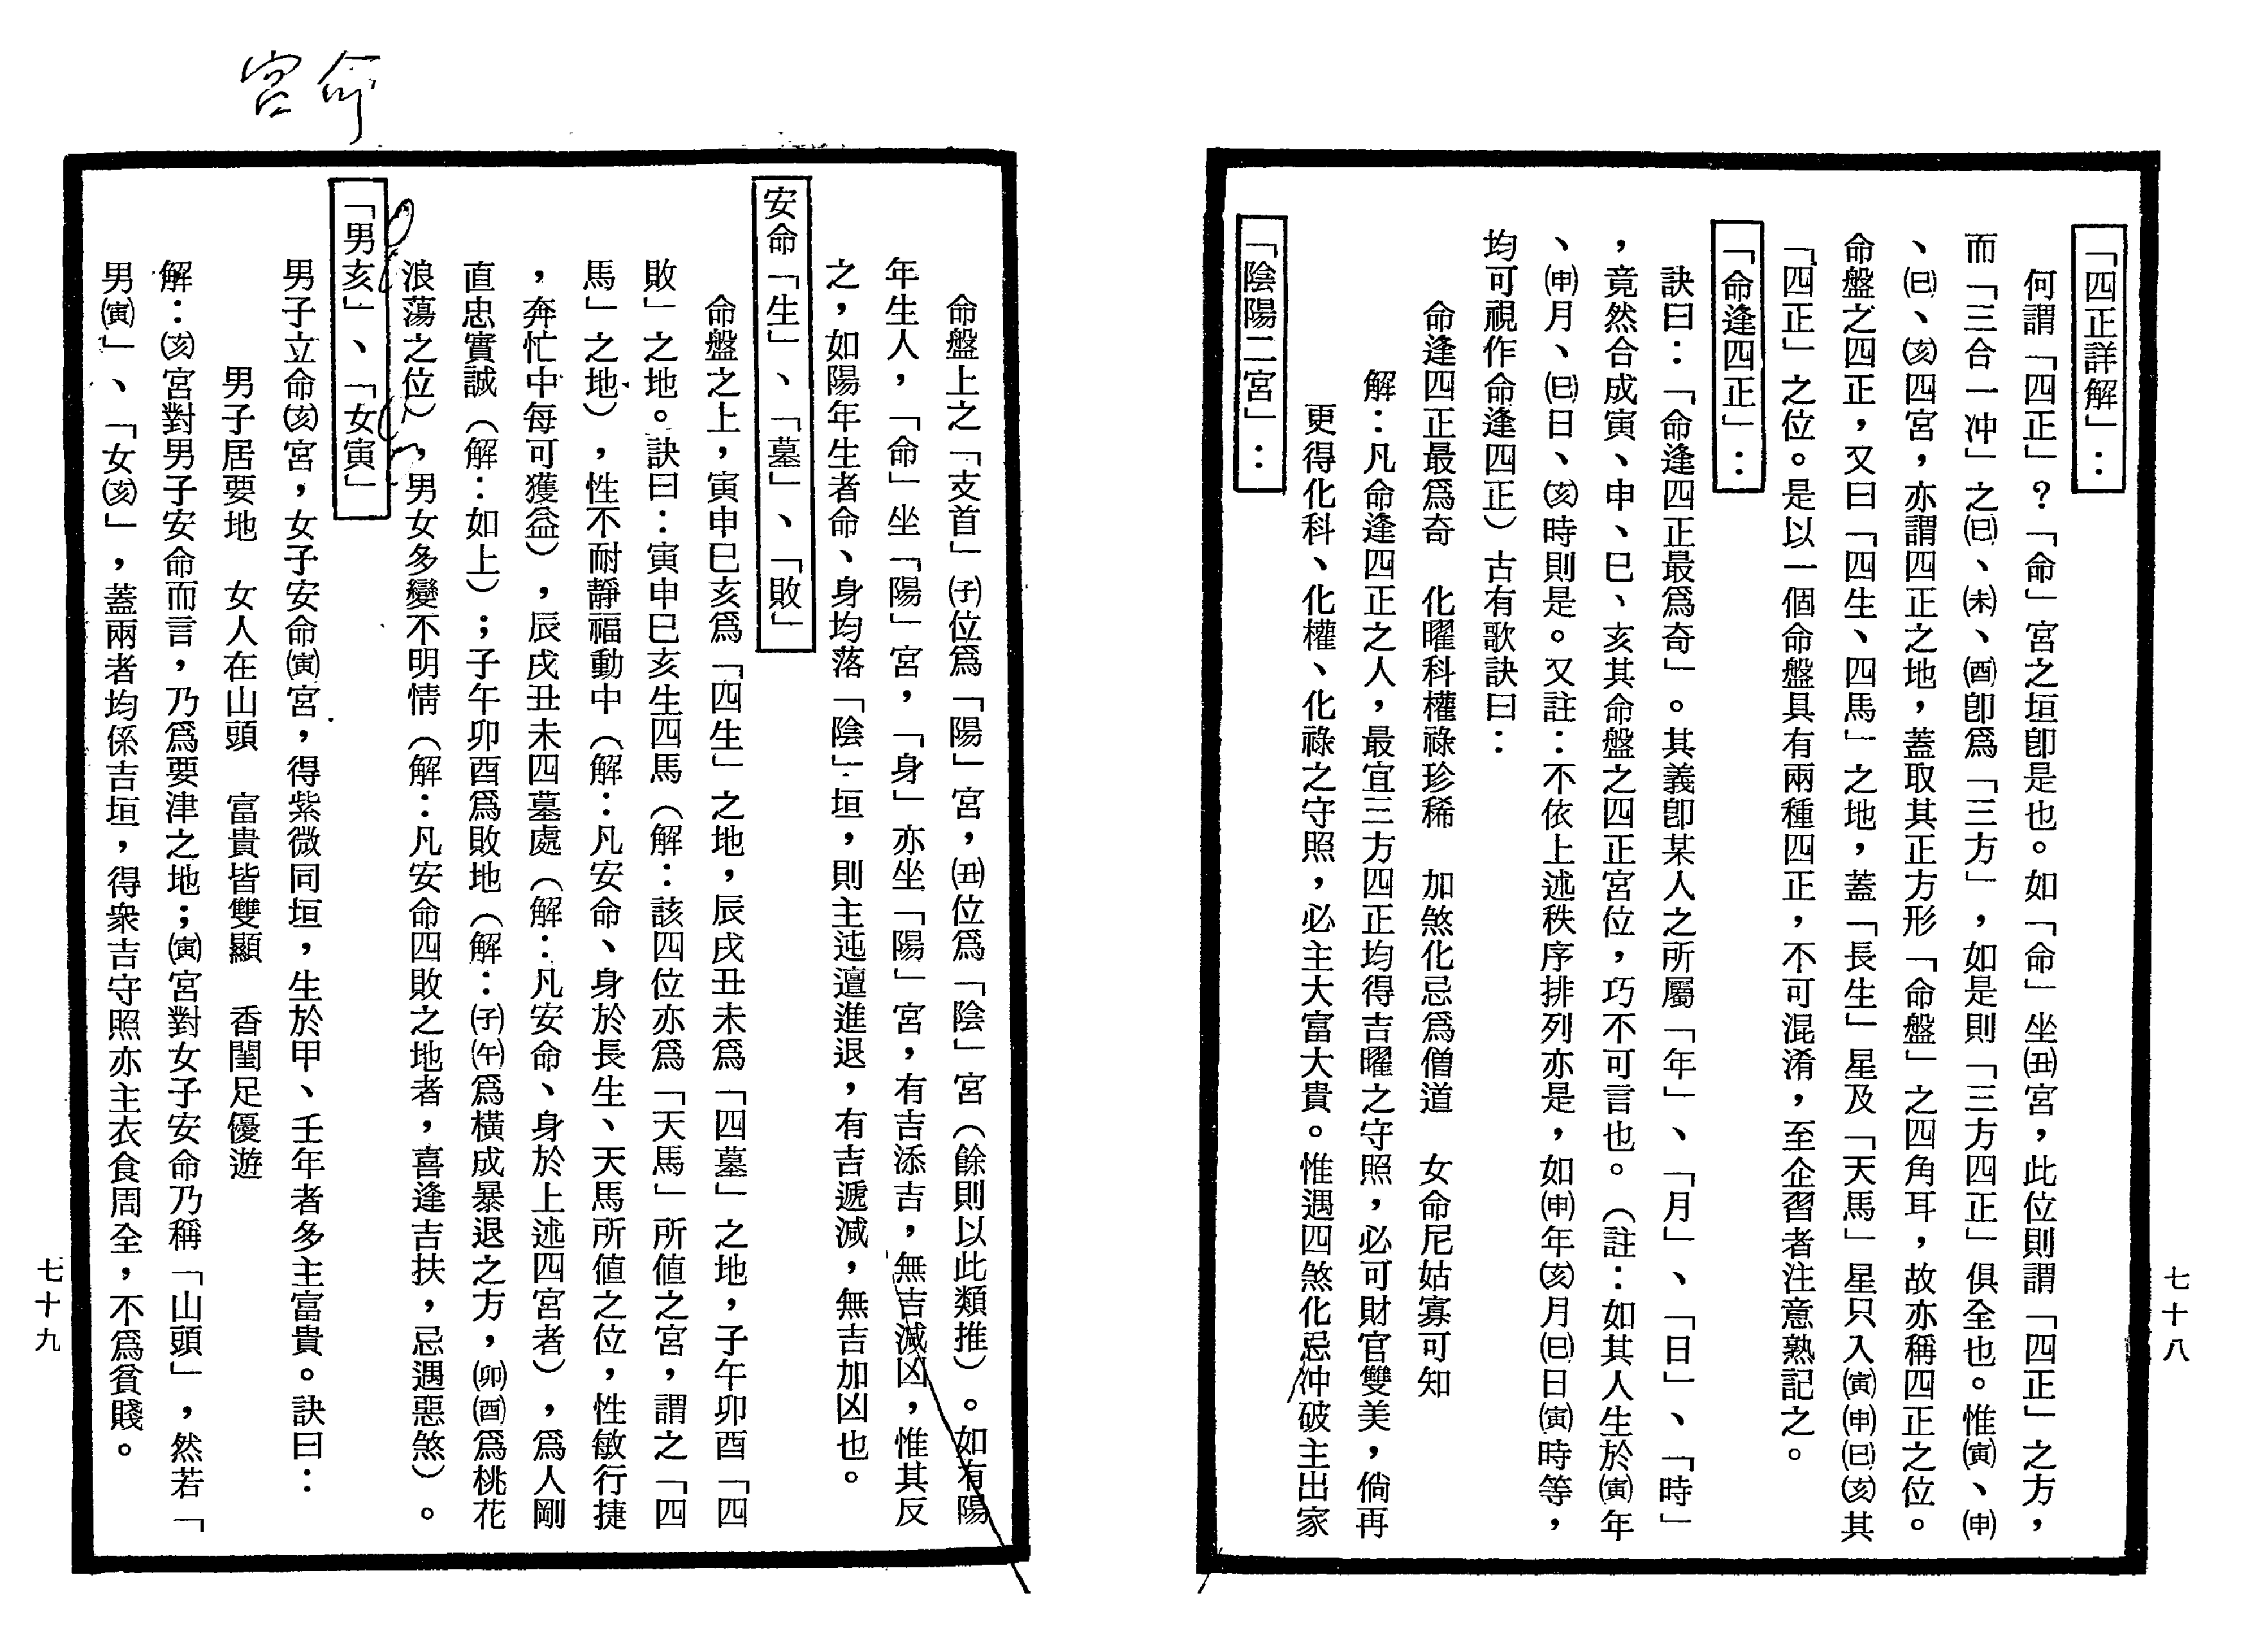 「四正詳解」：
何謂「四正」？「命」宮之垣卽是也。如「命」坐㊄宮，此位則謂「四正」之方，
而「三合一冲」之(巳)、(未)、(酉)卽爲「三方」，如是則「三方四正」俱全也。惟(寅)、(申)
、(巳)、(亥)四宮，亦謂四正之地，蓋取其正方形「命盤」之四角耳，故亦稱四正之位。
命盤之四正，又曰「四生、四馬」之地，蓋「長生」星及「天馬」星只入(寅)(申)(巳)(亥)其
「四正」之位。是以一個命盤具有兩種四正，不可混淆，至企習者注意熟記之。
「命逢四正」：
訣曰：「命逢四正最爲奇」。其義卽某人之所屬「年」、「月」、「日」、「時」
，竟然合成寅、申、巳、亥其命盤之四正宮位，巧不可言也。（註：如其人生於(寅)年
、(申)月、(巳)日、(亥)時則是。又註：不依上述秩序排列亦是，如(申)年(亥)月(巳)日(寅)時等，
均可視作命逢四正）古有歌訣曰：
命逢四正最爲奇　化曜科權祿珍稀　加煞化忌爲僧道　女命尼姑寡可知
解：凡命逢四正之人，最宜三方四正均得吉曜之守照，必可財官雙美，倘再
更得化科、化權、化祿之守照，必主大富大貴。惟遇四煞化忌冲破主出家
「陰陽二宮」：
七十八
命宮
命盤上之「支首」(子)位爲「陽」宮，(丑)位爲「陰」宮（餘則以此類推）。如有陽
年生人，「命」坐「陽」宮，「身」亦坐「陽」宮，有吉添吉，無吉減凶，惟其反
之，如陽年生者命、身均落「陰」垣，則主迍邅進退，有吉遞減，無吉加凶也。
安命「生」、「墓」、「敗」
命盤之上，寅申巳亥爲「四生」之地，辰戌丑未爲「四墓」之地，子午卯酉「四
敗」之地。訣曰：寅申巳亥生四馬（解：該四位亦爲「天馬」所値之宮，謂之「四
馬」之地），性不耐靜福動中（解：凡安命、身於長生、天馬所値之位，性敏行捷
，奔忙中每可獲益），辰戌丑未四墓處（解：凡安命、身於上述四宮者），爲人剛
直忠實誠（解：如上）；子午卯酉爲敗地（解：(子)(午)爲橫成暴退之方，(卯)(酉)爲桃花
浪蕩之位），男女多變不明情（解：凡安命四敗之地者，喜逢吉扶，忌遇惡煞）。
「男亥」、「女寅」
男子立命(亥)宮，女子安命(寅)宮，得紫微同垣，生於甲、壬年者多主富貴。訣曰：
男子居要地　女人在山頭　富貴皆雙顯　香閨足優遊
解：(亥)宮對男子安命而言，乃爲要津之地；(寅)宮對女子安命乃稱「山頭」，然若「
男(寅)」、「女(亥)」，蓋兩者均係吉垣，得衆吉守照亦主衣食周全，不爲貧賤。
七十九